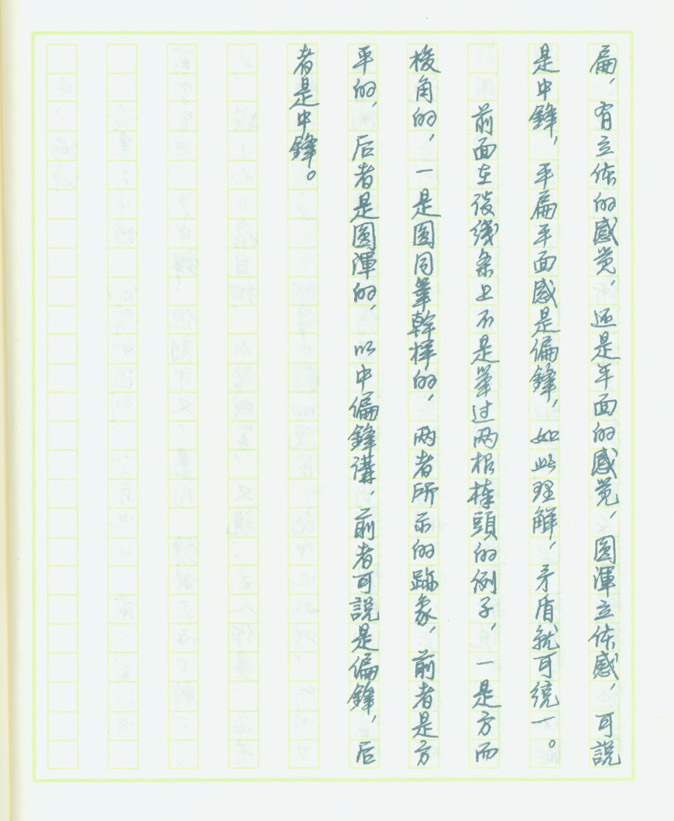 扁，有立体的感觉，还是平面的感觉，圆渾立体感，可説
是中鋒，平扁平面感是偏鋒，如此理解，矛盾就可统一。
前面在谈线条上不是举过两根棒頭的例子，一是方而
棱角的，一是圆同筆幹樣的，两者所示的跡象，前者是方
平的，后者是圆渾的，以中偏鋒講，前者可說是偏鋒，后
者是中鋒。